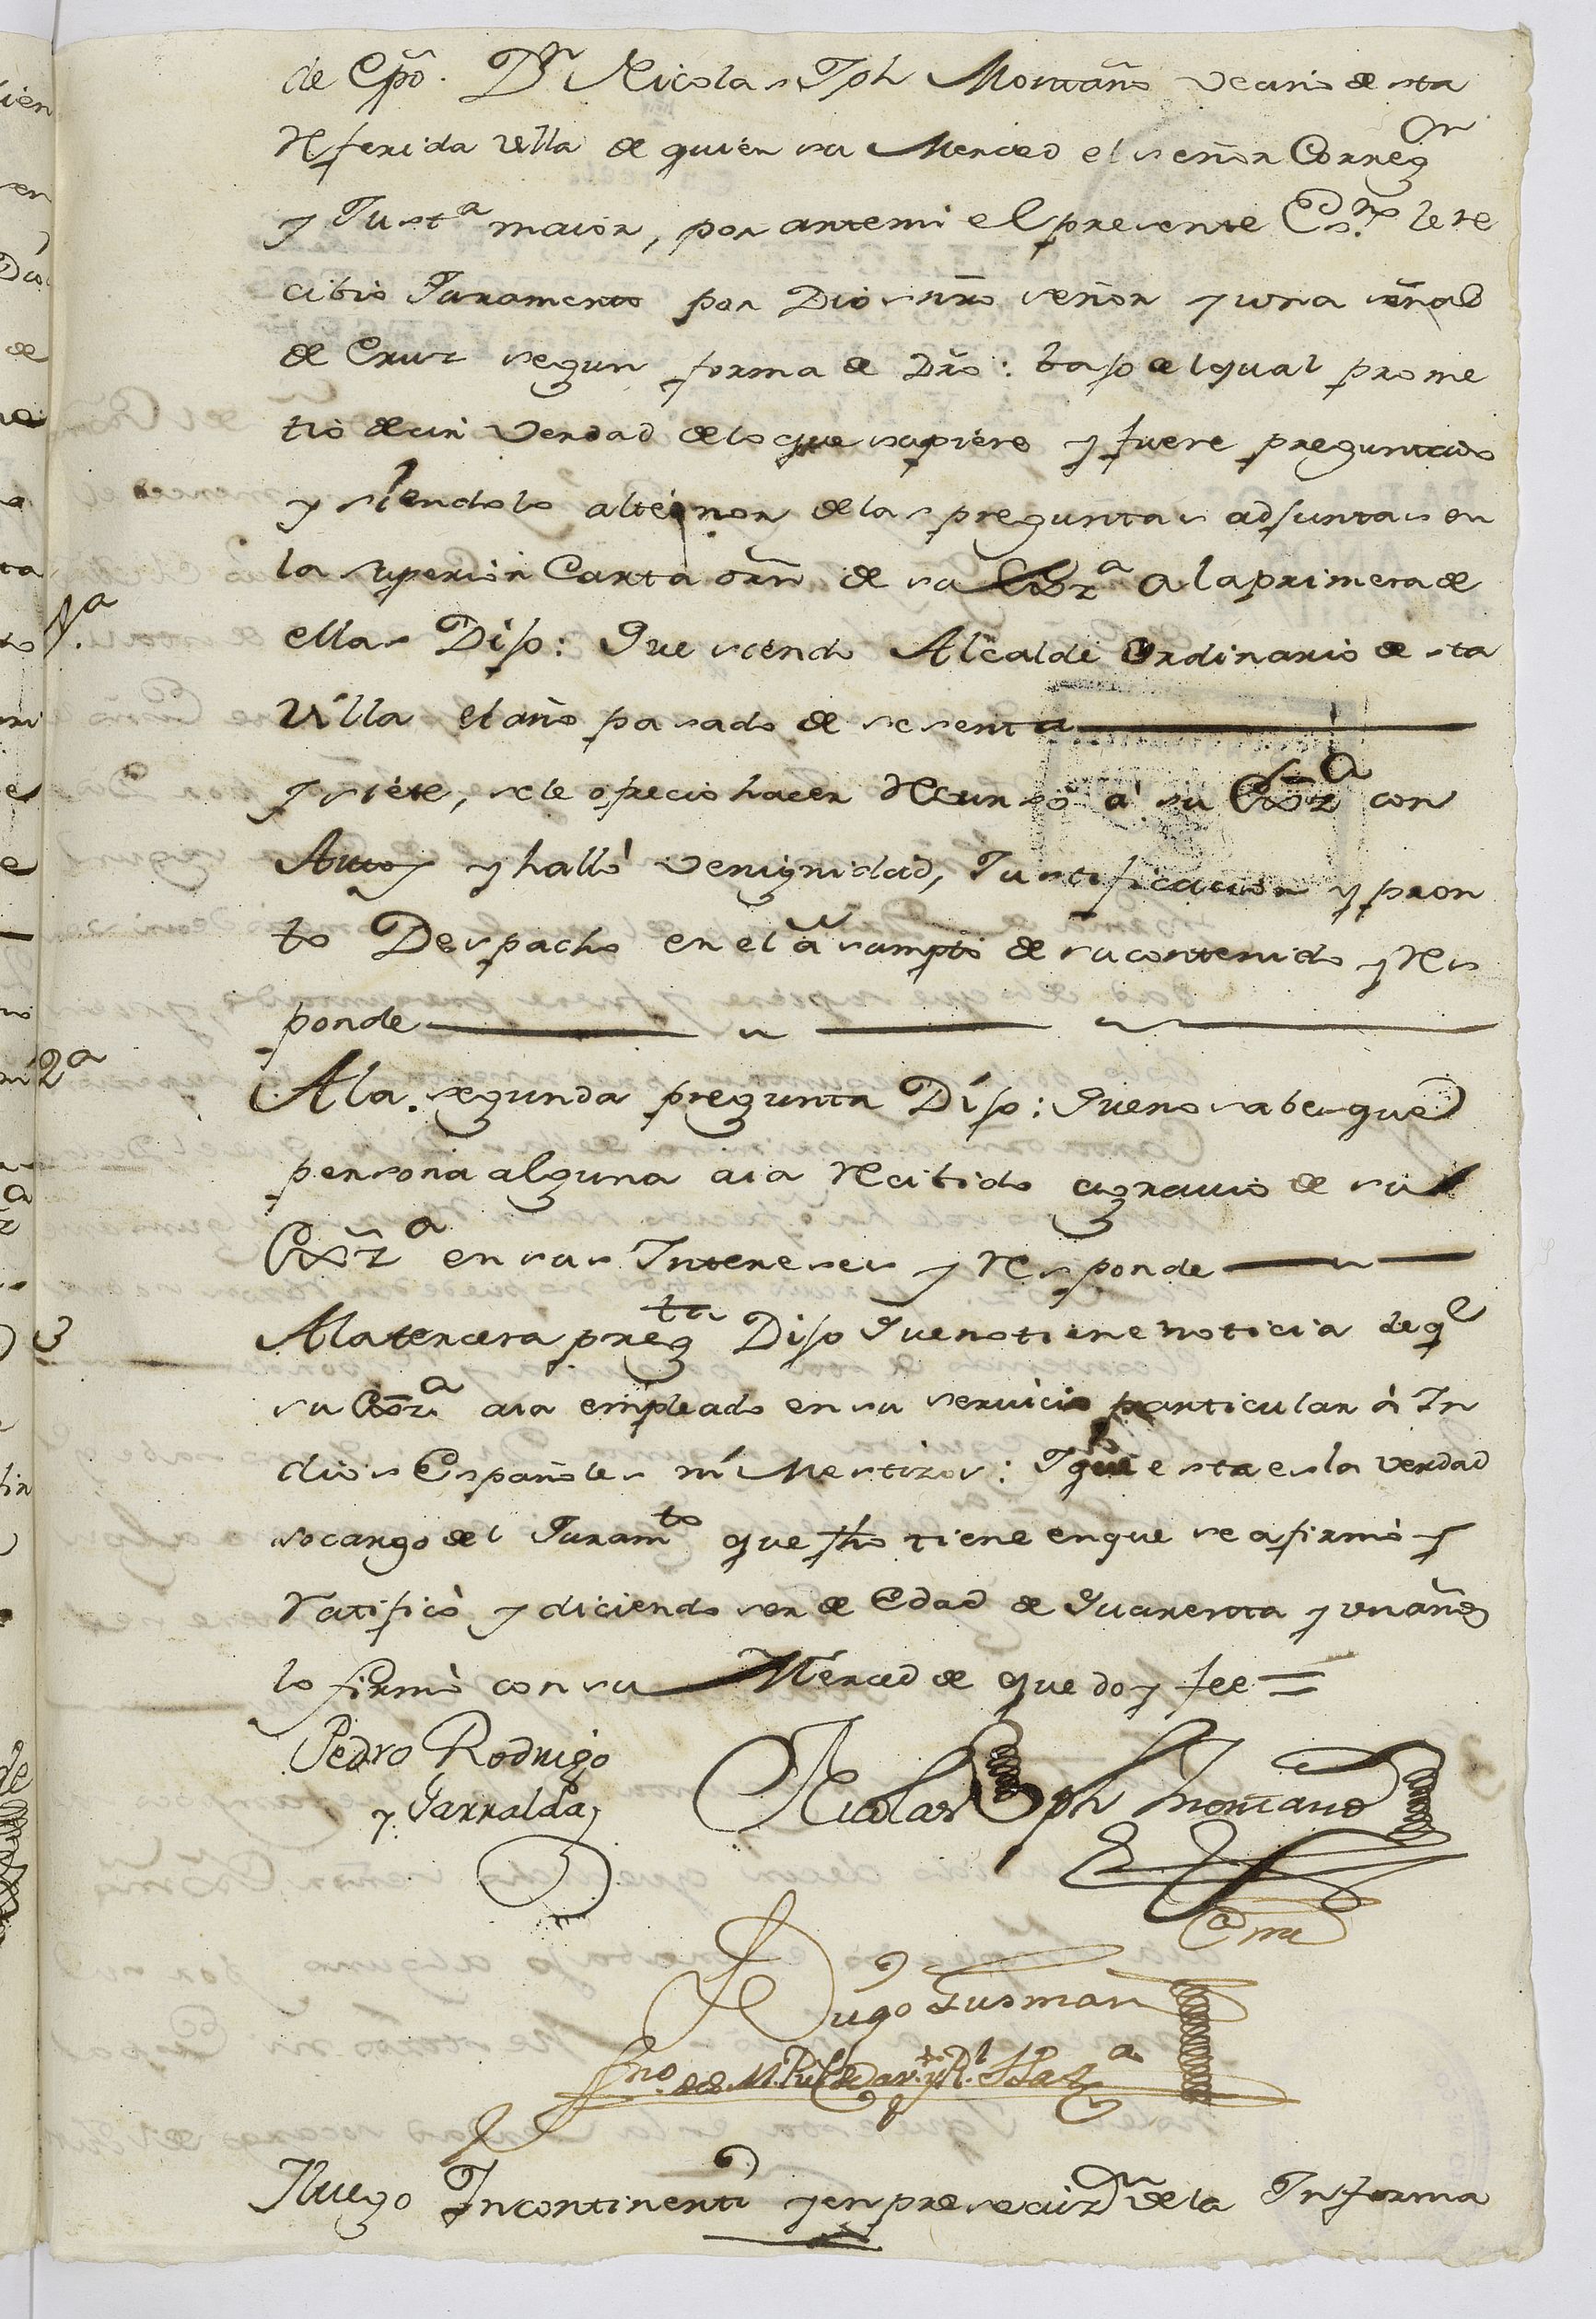 de Cpō. Dn Nicolas Jph Montaño vecino desta
Referida Villa de quien su Merced el señor Correg.or
y Justa maior, por antemi el presente Esno. le re
cibio Juramento por Dios nro señor y una señal
de Cruz segun forma de Dro: bajo del qual prome
tio decir verdad delo que supiere y fuere preguntado
y siendolo altenor delas preguntas adjuntas en
la superior Carta orn de su Exa. a la primera de
1a.
ellas Dijo: Que siendo Alcalde Ordinario desta
Villa el año pasado de sesenta
y siete, sele ofrecio hacer Recurso à su Exa con
Autos y halló venignidad, Justificacion y pron
to Despacho en el asumpto de su contenido y Res
ponde
2a
A la segunda pregunta Dijo: Que no sabe que
persona alguna aia Recibido agravio de su
Exa en sus Intereses y Responde
3
A la tercera pregta Dijo Que no tiene noticia de qe
su Exa aia empleado en su servicio particular à In
dios Españoles ni Mestizos: Y que esta es la verdad
socargo del Juramto que fho tiene en que se afirmò y
Ratificò y diciendo ser de Edad de Quarenta y un años
lo firmò con su Merced de que doy fee =
Pedro Rodrigo
y Garralda
Nicolas Jph Montaño
Ante mi
Hugo Gusman
Sno. de S.M. Pub.co de Cav.do y Rl. Haza
Nuego Incontinenti y en prosecuzn dela Informa